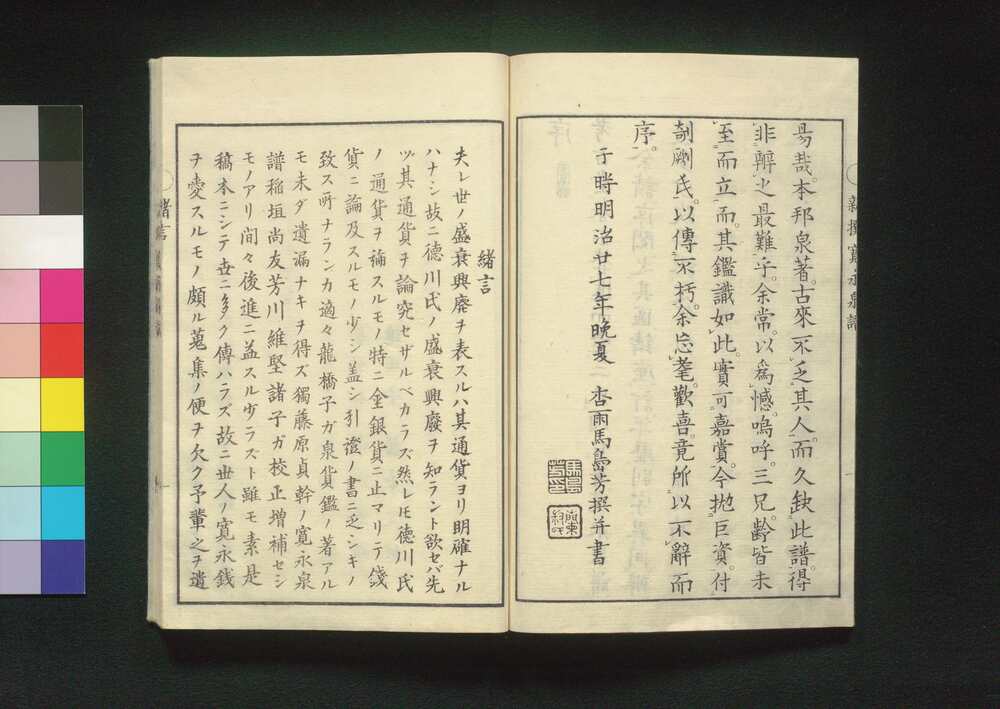 新撰寛永泉譜
昜哉。本邦泉著。古來不乏其人。而久缺此譜。得
非辨之最難乎。余常以爲憾。嗚呼。三兄齡皆未
至而立。而其鑑識如此。實可嘉賞。今抛巨資。付
剞劂氏。以傳不朽。余忘耄歡喜。竟所以不辭而
序。
于時明治廿七年晩夏　杏雨馬島芳撰并書
緒言
夫レ世ノ盛衰興廢ヲ表スルハ其通貨ヨリ明確ナル
ハナシ故ニ德川氏ノ盛衰興廢ヲ知ラント欲セバ先
ヅ其通貨ヲ論究セザルベカラズ然レトモ德川氏
ノ通貨ヲ稱スルモノ特ニ金銀貨ニ止マリテ錢
貨ニ論及スルモノ少シ蓋シ引證ノ書ニ乏シキノ
致ス所ナランカ適々龍橋子ガ泉貨鑑ノ著アル
モ未ダ遺漏ナキヲ得ズ獨藤原貞幹ノ寛永泉
譜稲垣尚友芳川維堅諸子ガ校正增補セシ
モノアリ間々後進ニ益スル少ラスト雖モ素是
稿本ニシテ世ニ多ク傳ハラズ故ニ世人ノ寛永錢
ヲ愛スルモノ頗ル蒐集ノ便ヲ欠ク予輩之ヲ遺
緒言